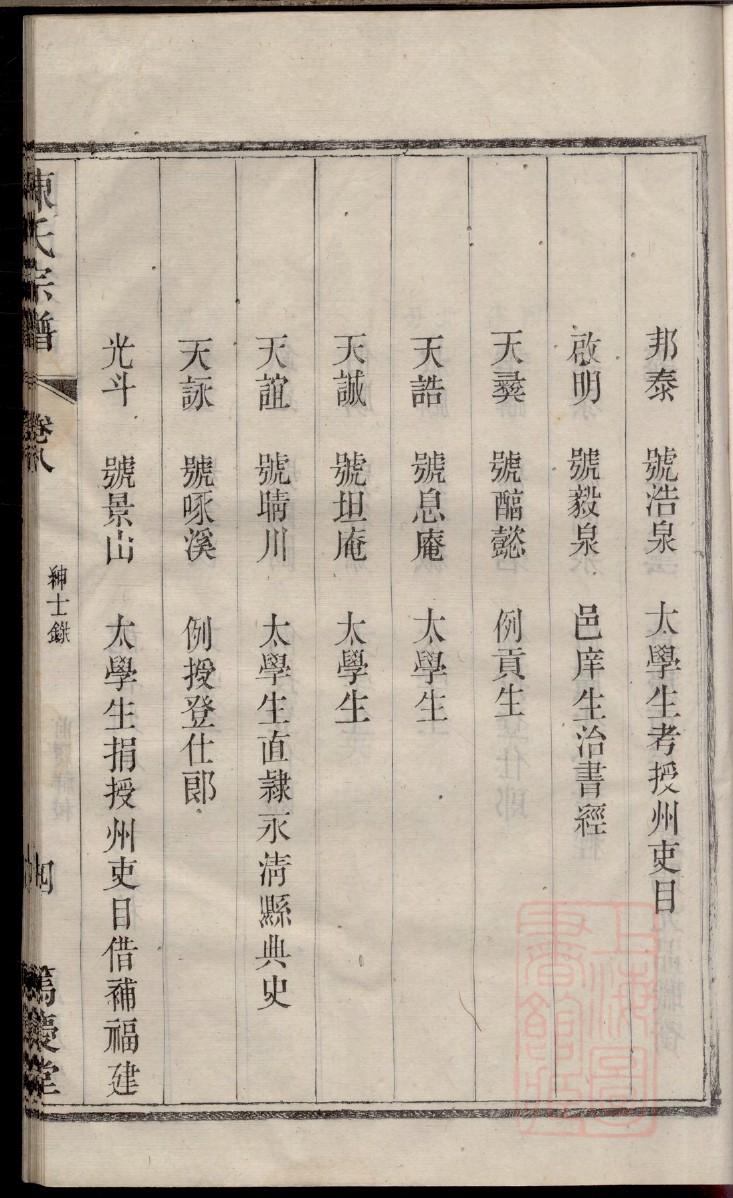 邦泰　號浩泉　太學生考授州吏目
啟明　號毅泉　邑庠生治書經
天彝　號醕懿　例貢生
天誥　號息庵　太學生
天誠　號坦庵　太學生
天誼　號晴川　太學生直隷永清縣典史
天詠　號啄溪　例授登仕郎
光斗　號景山　太學生捐授州吏目借補福建
陳氏宗譜　卷八　紳士錄　四　篤慶堂
上海圖書館藏